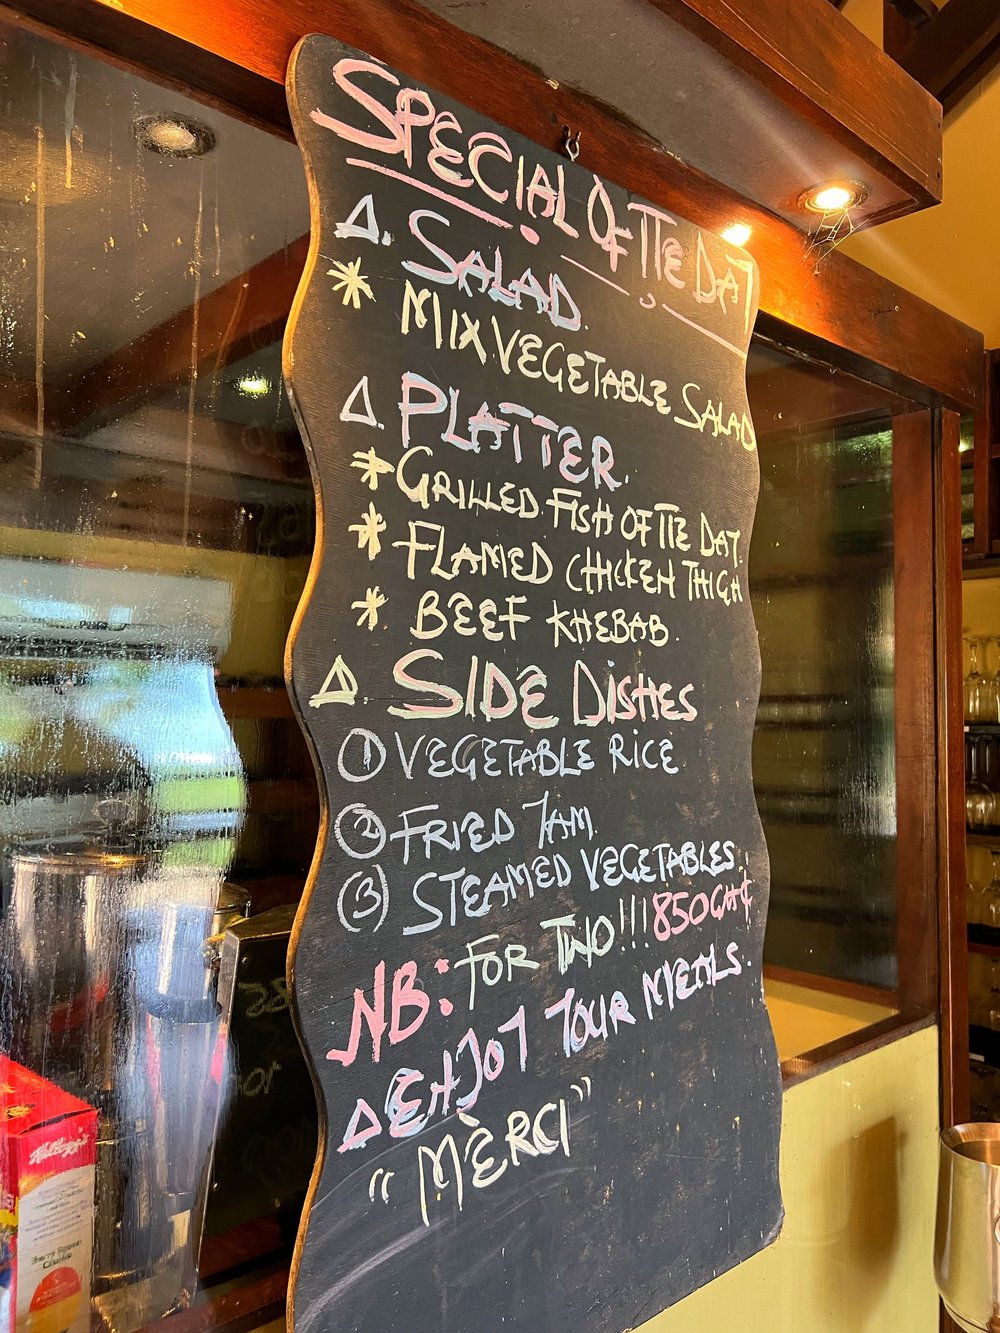 SPECIAL OF TTE DAY
Δ. SALAD.
* MIX VEGETABLE SALAD
Δ. PLATTER.
* GRILLED FISH OF TTE DAY.
* FLAMED CHICKEN THIGH
* BEEF KHEBAB.
Δ. SIDE DISHES
① VEGETABLE RICE
② FRIED YAM.
③ STEAMED VEGETABLES.
NB: FOR TWO!!! 850GH¢
Δ ENJOY YOUR MEALS.
"MÈRCI"
Kellogg's